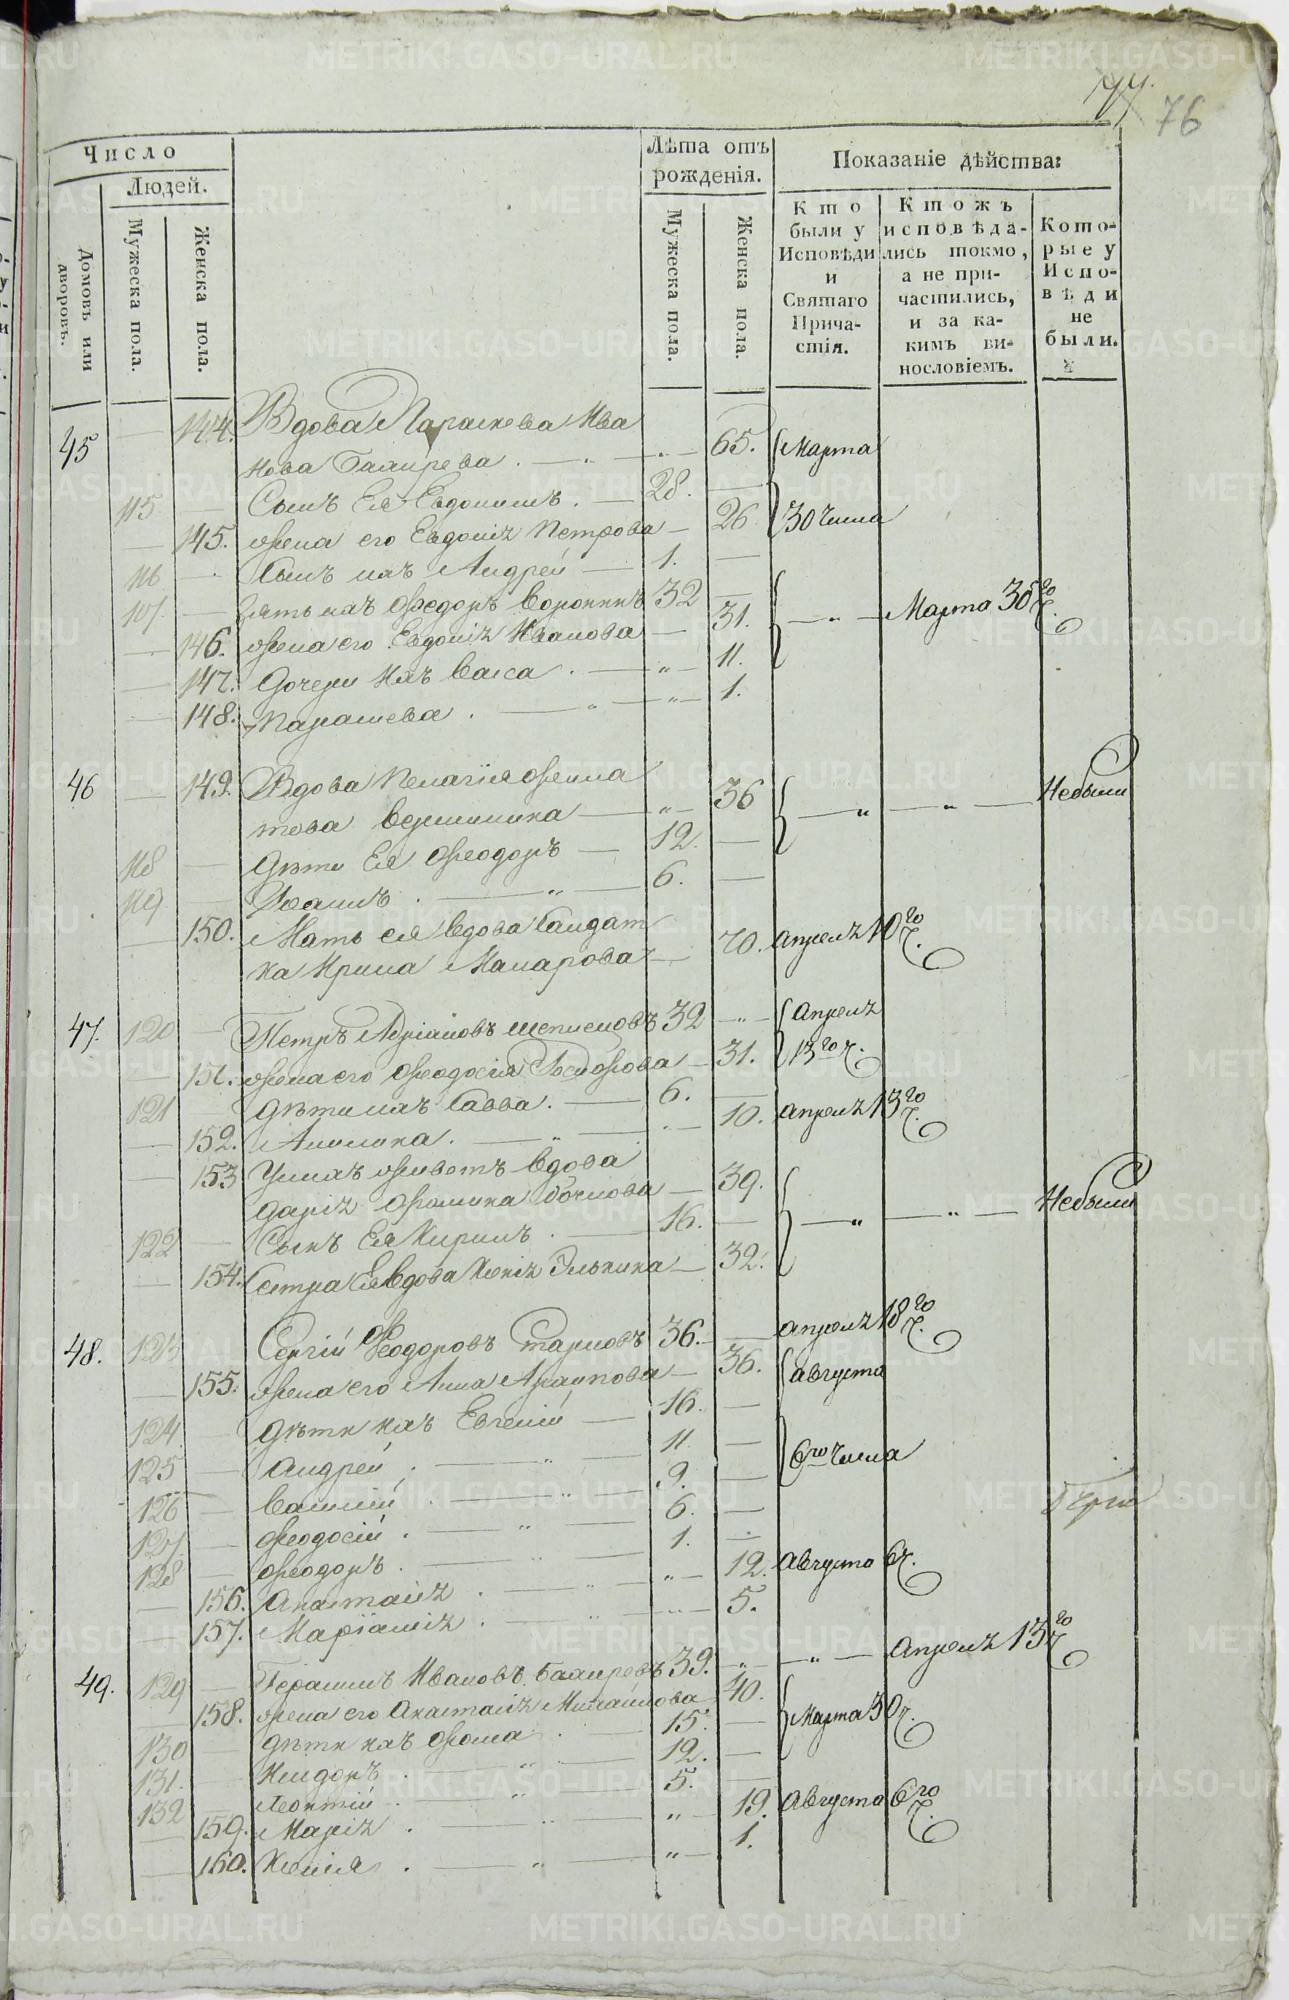 77.
76
Число
Людей.
Домовъ или дворовъ.
Мужеска пола.
Женска пола.
Лѣта отъ рожденія.
Мужеска пола.
Женска пола.
Показаніе дѣйства:
Кто были у Исповѣди и Святаго Причастія.
Ктожъ исповѣдались токмо, а не причастились, и за какимъ винословіемъ.
Которые у Исповѣди не были.
45 — 144. Вдова Параскева Ива
нова Балирева . — „ — „ — 65. Марта
115 — Сынъ Ея Евдокимъ . — 28. —
— 145. жена его Евдокія Петрова — 26 30 числа
116 — Сынъ ихъ Андрей — 1. —
117 — Зять ихъ Ѳедоръ Воронинъ 32 —
— 146. жена его Евдокія Иванова — 31. — „ — Марта 30го ч.
— 147. Дочери ихъ Васса . — „ — 11.
— 148. Параскева . — „ — „ — 1.
46 — 149. Вдова Пелагія Филипа
това Вершинина — „ — 36 — „ — „ — Небыли
118 — Дѣти Ея Ѳеодоръ — 12. —
119 — Іоаннъ . — „ — 6. —
— 150. Мать ея вдова Салдат
ка Ирина Макарова — 70. Апреля 10го ч.
47. 120 — Петръ Адріановъ 32 — „ — Апреля
— 151. жена его Ѳеодосія — 31. 13го ч.
121 Дѣти ихъ Савва . — 6. —
— 152. Акилина . — „ — 10. Апреля 13го ч.
— 153 У нихъ живетъ вдова
Дарія Фомина — 39.
122 — Сынъ Ея Кирилъ . — 16. — — „ — „ — Небыли
— 154. Сестра Ея вдова Ксенія — 32.
48. 123 Сергій Ѳеодоровъ 36. — Апреля 18го ч.
— 155. жена его Анна — 36. Августа
124 — Дѣти ихъ Евгений — 16. —
125 — Андрей . — „ — 11. — 6го числа
126 — Василий . — „ — 9. —
127 — Ѳеодосій . — „ — 6. —
128 — Ѳеодоръ . — „ — 1. —
— 156. Анастасія . — „ — „ — 12. Августа 6 ч.
— 157. Маріамія . — „ — „ — 5.
49. 129 — Герасимъ Ивановъ Балиревъ 39. — „ — „ — Апреля 13го ч.
— 158. жена его Анастасія Михайлова 40.
130 — Дѣти ихъ Фома . — 15. — Марта 30 ч.
131. — Исидоръ . — „ — 12. —
132 — Леонтій . — „ — 5. —
— 159. Марія . — „ — „ — 19. Августа 6го ч.
— 160. Ксенія . — „ — „ — 1.